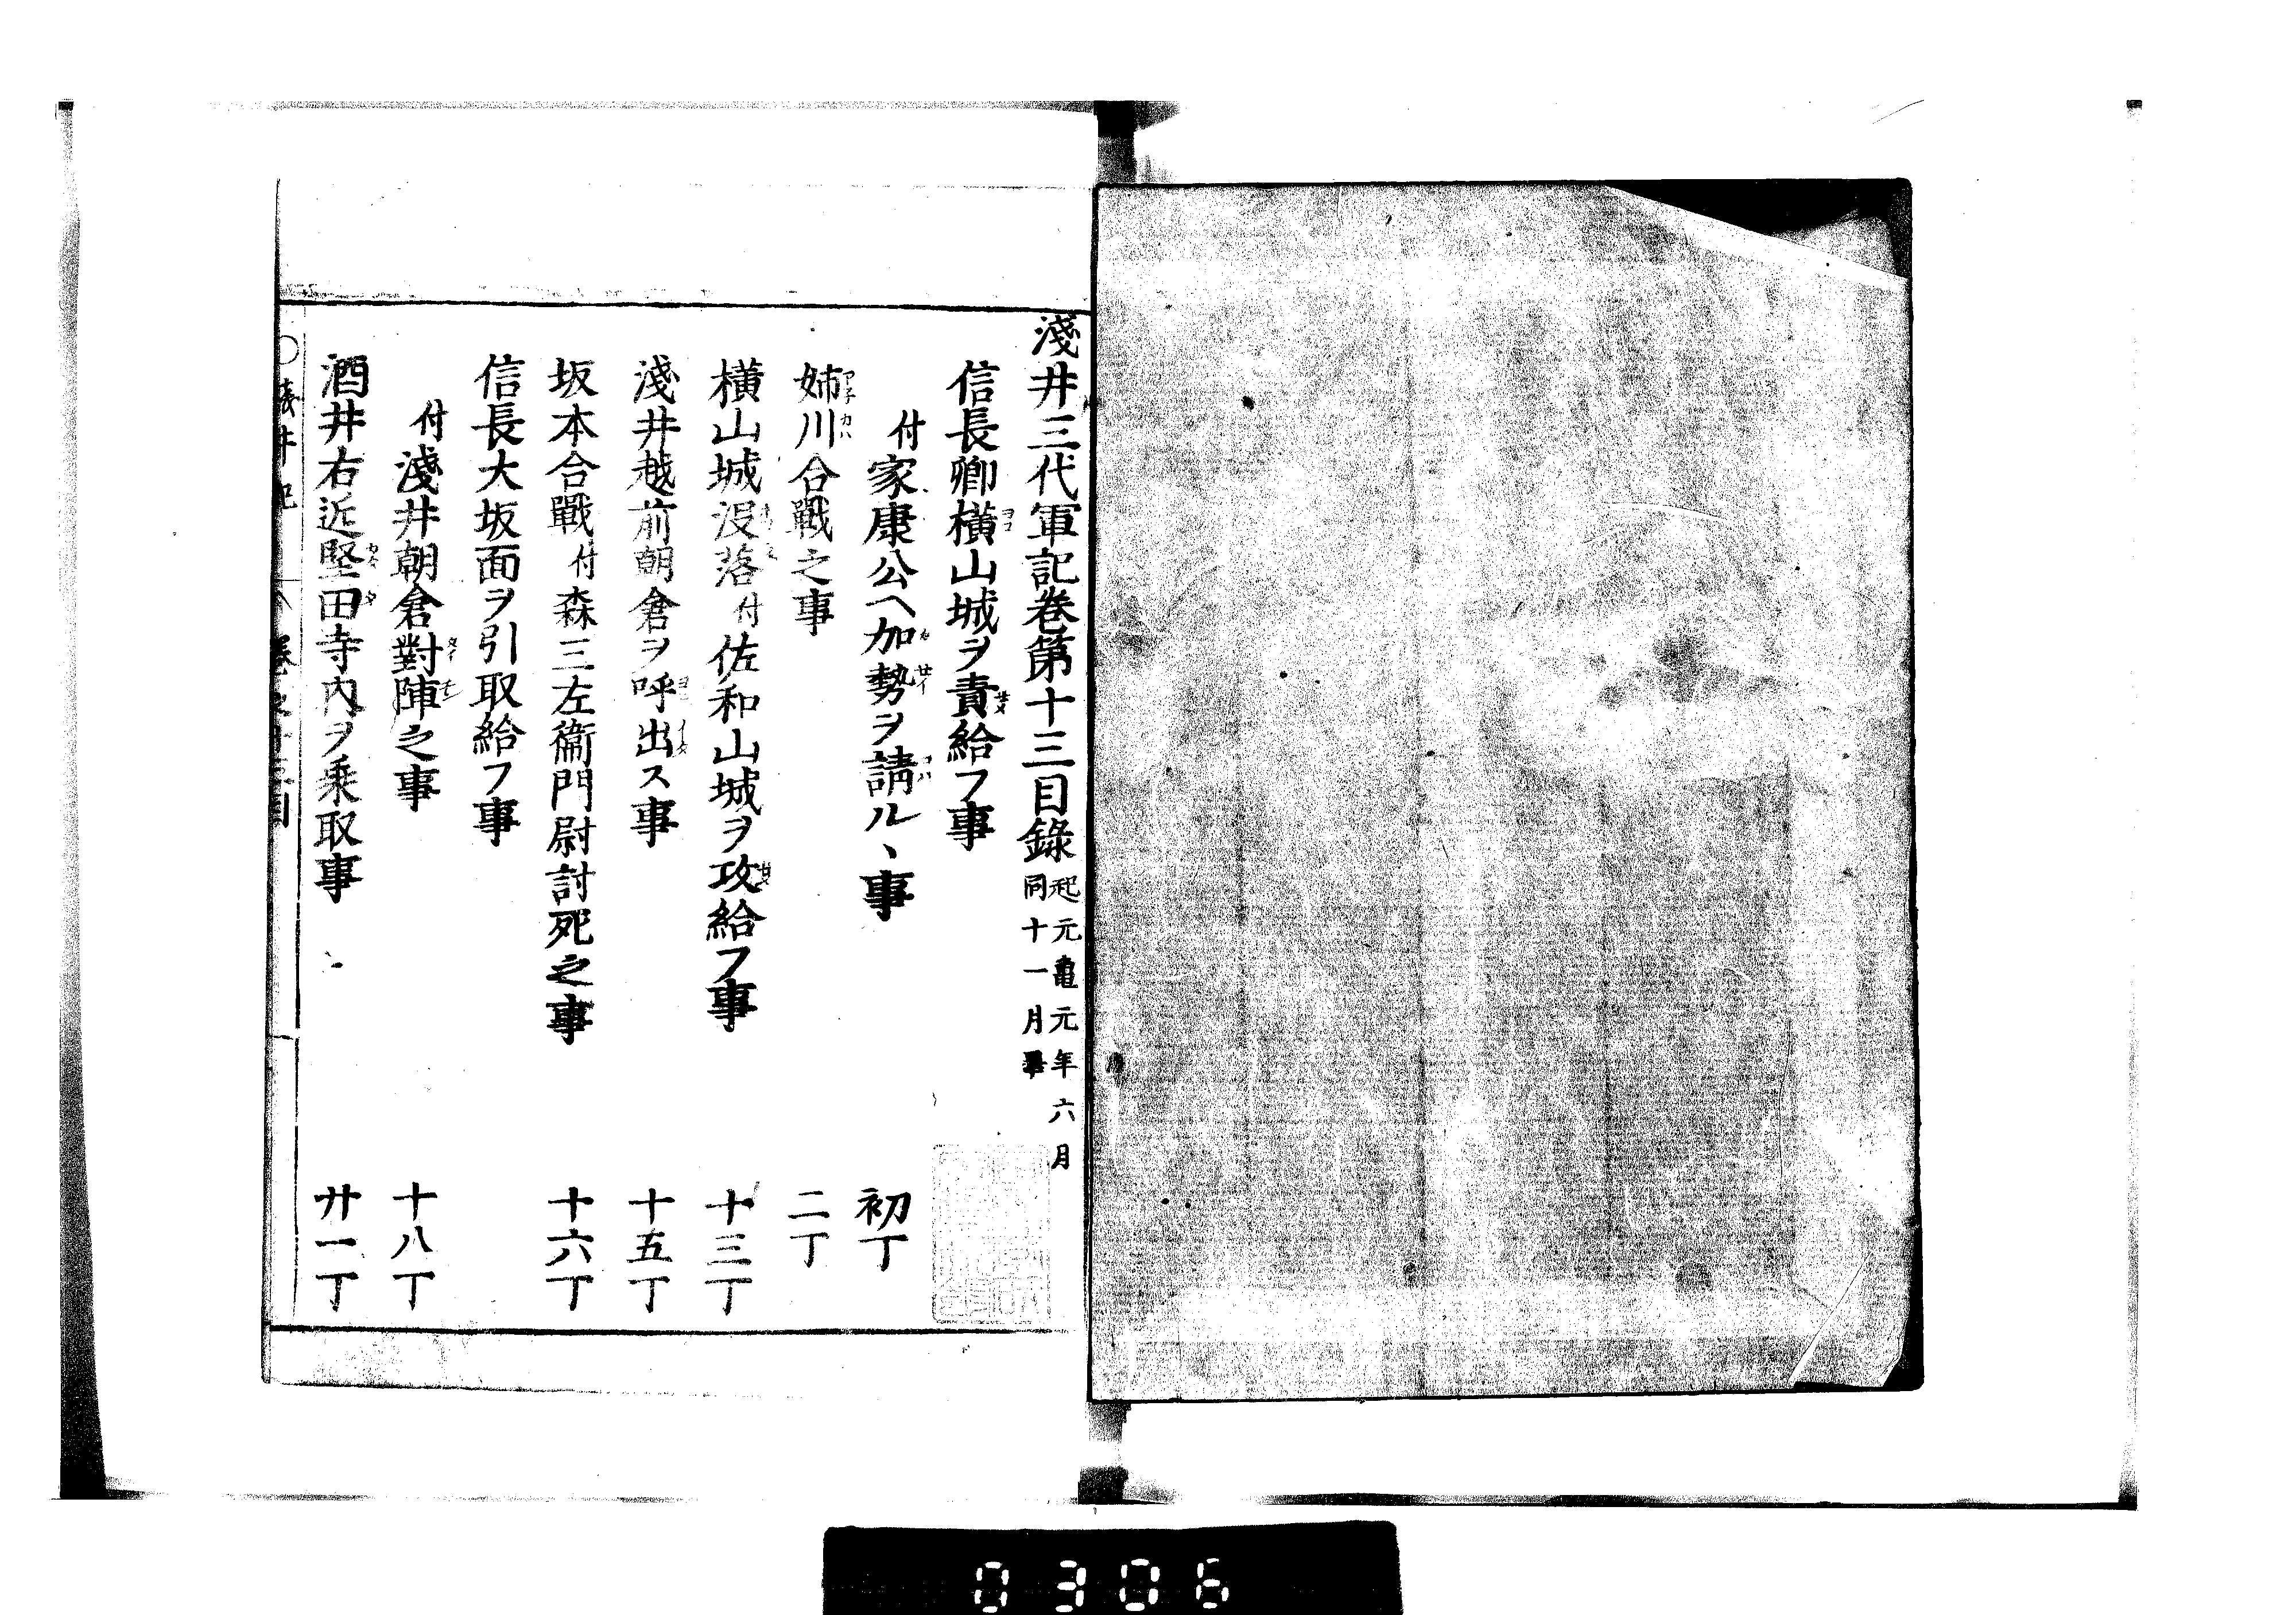 淺井三代軍記卷第十三目錄 起元亀元年六月 同十一月畢
信長卿横山城ヲ責給フ事
付家康公ヘ加勢ヲ請ル、事 初丁
姉川合戰之事 二丁
横山城没落付佐和山城ヲ攻給フ事 十三丁
淺井越前朝倉ヲ呼出ス事 十五丁
坂本合戰付森三左衞門尉討死之事 十六丁
信長大坂面ヲ引取給フ事
付淺井朝倉對陣之事 十八丁
酒井右近堅田寺内ヲ乗取事 廿一丁
0306